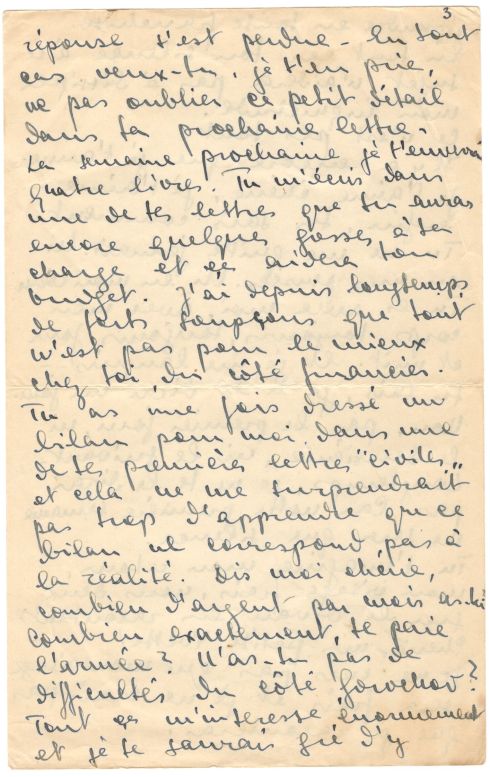 3
réponse s'est perdue - En tout
cas veux-tu, je t'en prie,
ne pas oublier ce petit détail
dans ta prochaine lettre -
La semaine prochaine je t'enverrai
quatre livres. Tu m'écris dans
une de tes lettres que tu auras
encore quelques gosses à ta
charge et ça aidera ton
budget. J'ai depuis longtemps
de forts soupçons que tout
n'est pas pour le mieux
chez toi, du côté financier.
Tu as une fois dressé un
bilan pour moi, dans une
de tes premières lettres "civiles"
et cela ne me surprendrait
pas trop d'apprendre que ce
bilan ne correspond pas à
la réalité. Dis moi chérie,
combien d'argent par mois as-tu?
Combien exactement te paie
l'armée? N'as-tu pas de
difficultés du côté ?
Tout ça m'interesse énormément
et je te saurais gré d'y